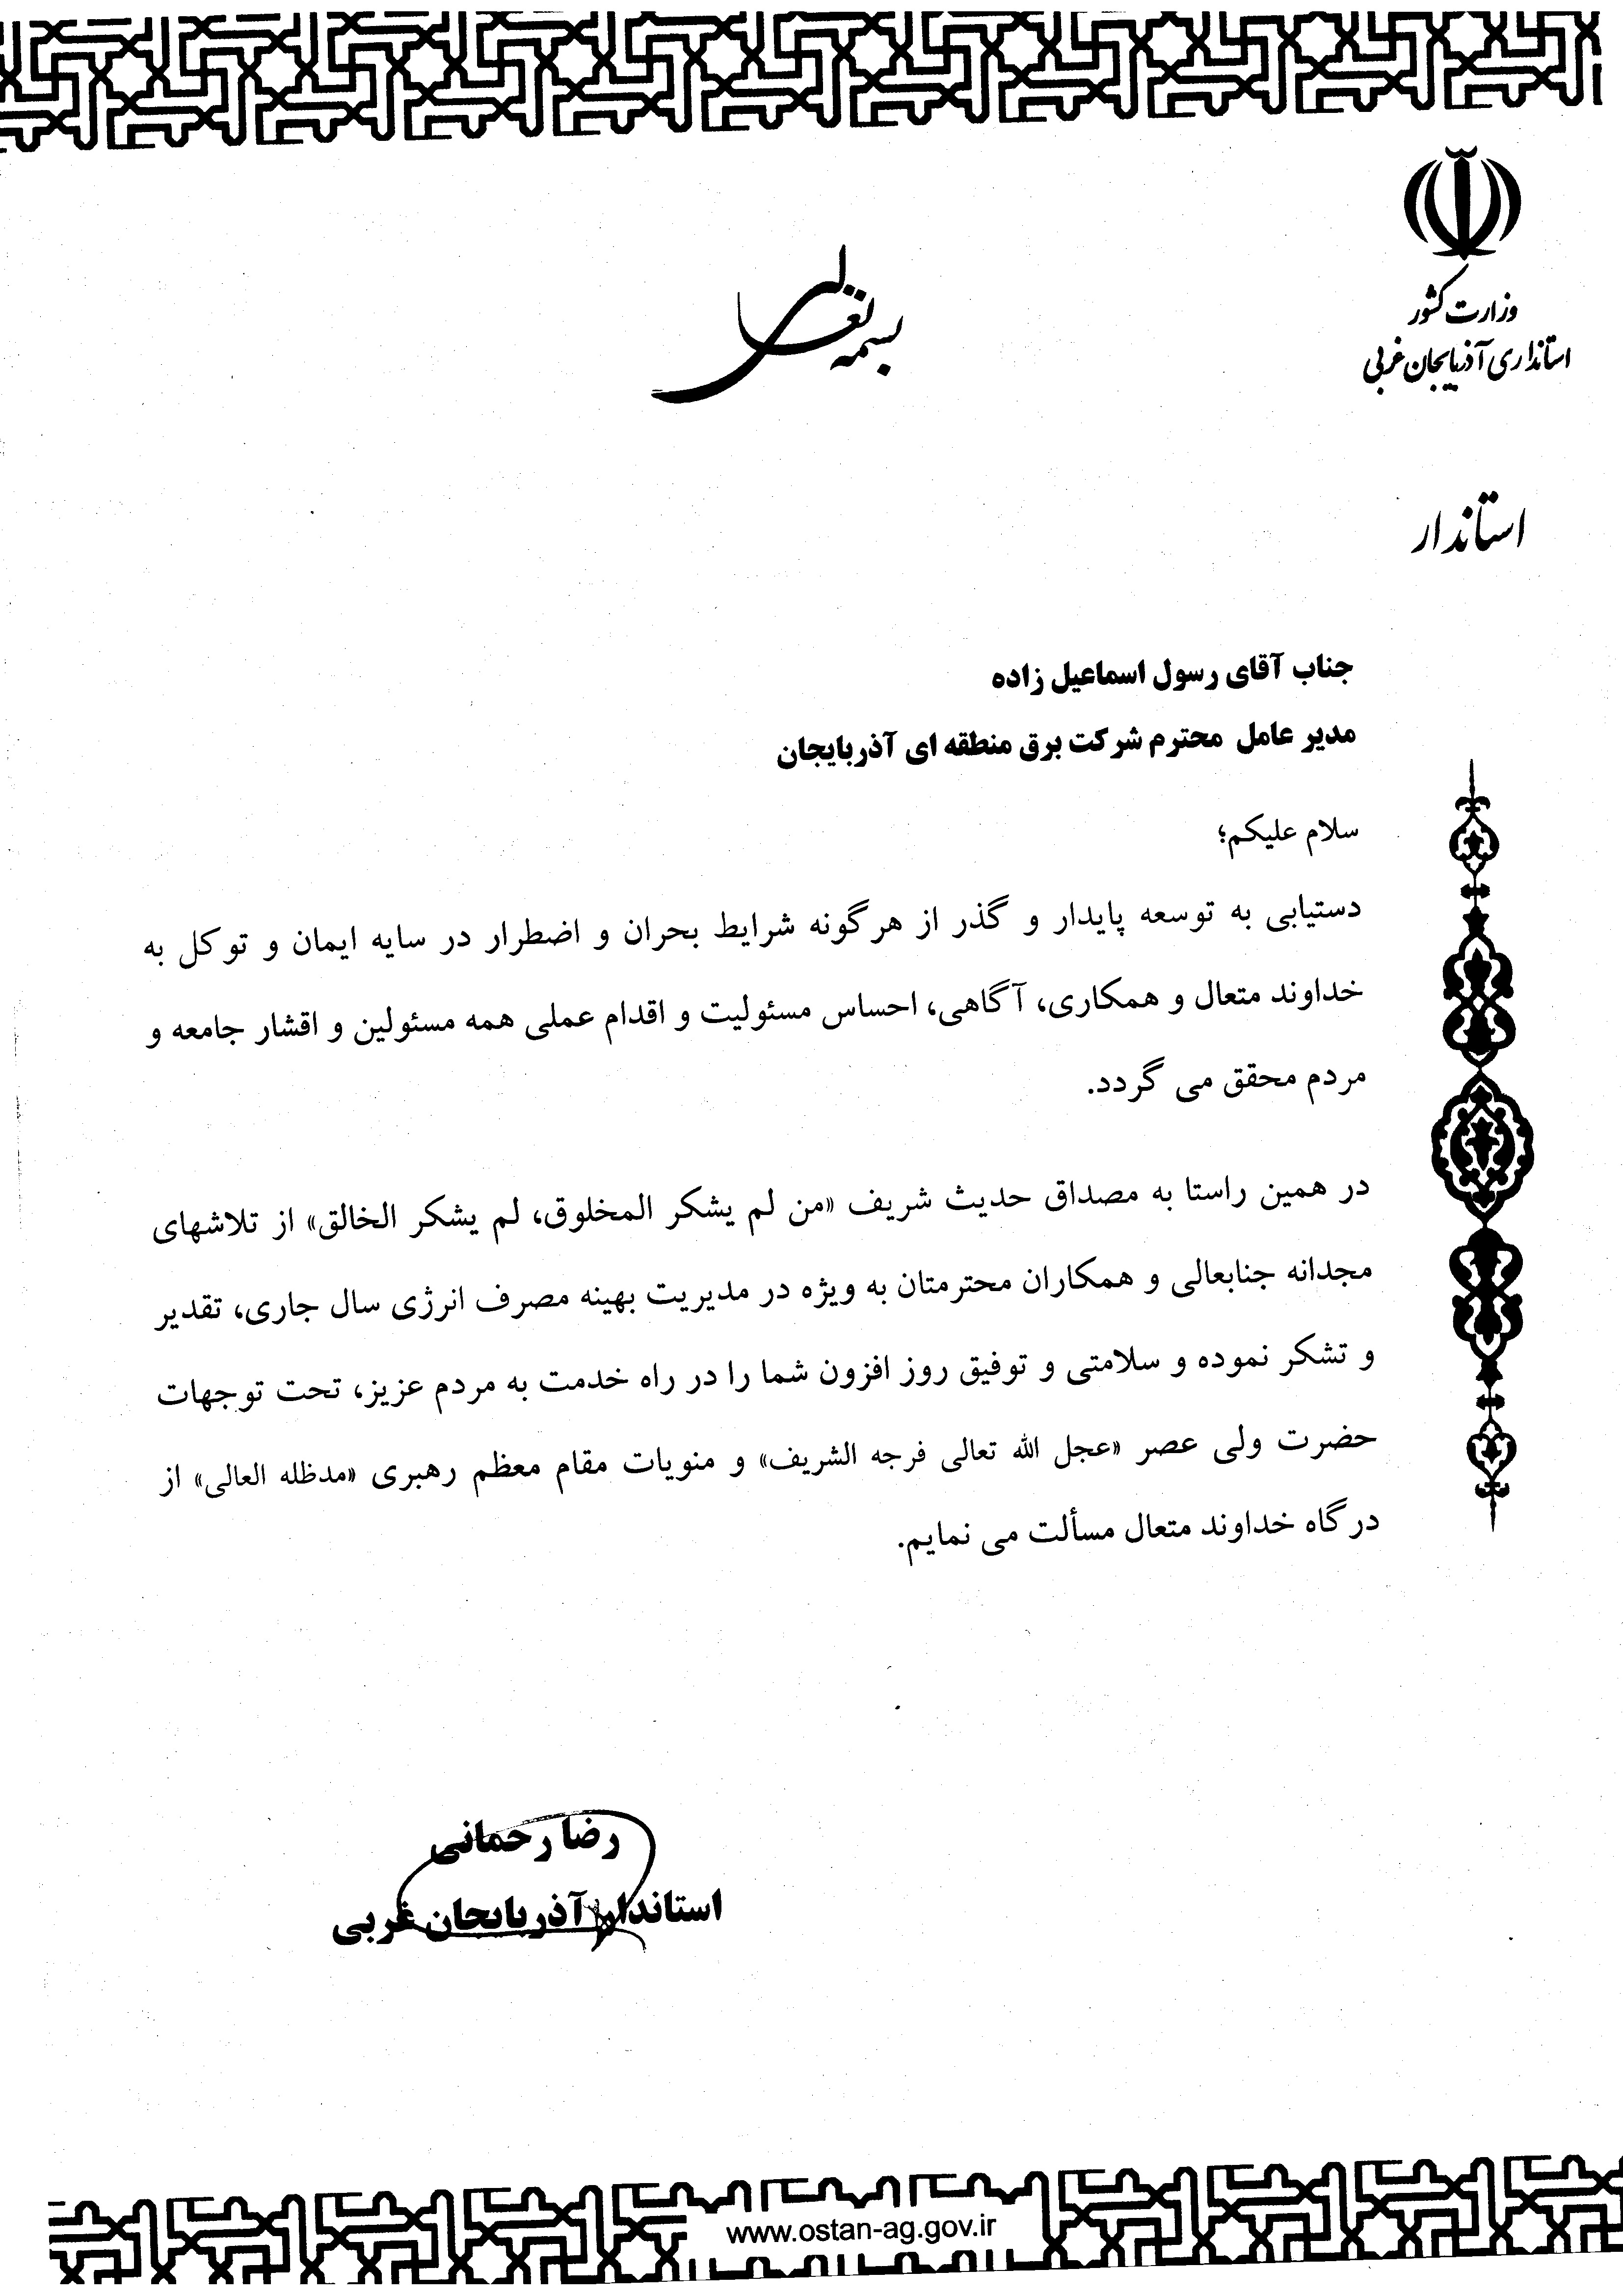 بسمه تعالی
وزارت کشور
استانداری آذربایجان غربی
استاندار
جناب آقای رسول اسماعیل زاده
مدیر عامل محترم شرکت برق منطقه ای آذربایجان
سلام علیکم؛
دستیابی به توسعه پایدار و گذر از هرگونه شرایط بحران و اضطرار در سایه ایمان و توکل به
خداوند متعال و همکاری، آگاهی، احساس مسئولیت و اقدام عملی همه مسئولین و اقشار جامعه و
مردم محقق می گردد.
در همین راستا به مصداق حدیث شریف «من لم یشکر المخلوق، لم یشکر الخالق» از تلاشهای
مجدانه جنابعالی و همکاران محترمتان به ویژه در مدیریت بهینه مصرف انرژی سال جاری، تقدیر
و تشکر نموده و سلامتی و توفیق روز افزون شما را در راه خدمت به مردم عزیز، تحت توجهات
حضرت ولی عصر «عجل الله تعالی فرجه الشریف» و منویات مقام معظم رهبری «مدظله العالی» از
درگاه خداوند متعال مسألت می نمایم.
رضا رحمانی
استاندار آذربایجان غربی
www.ostan-ag.gov.ir